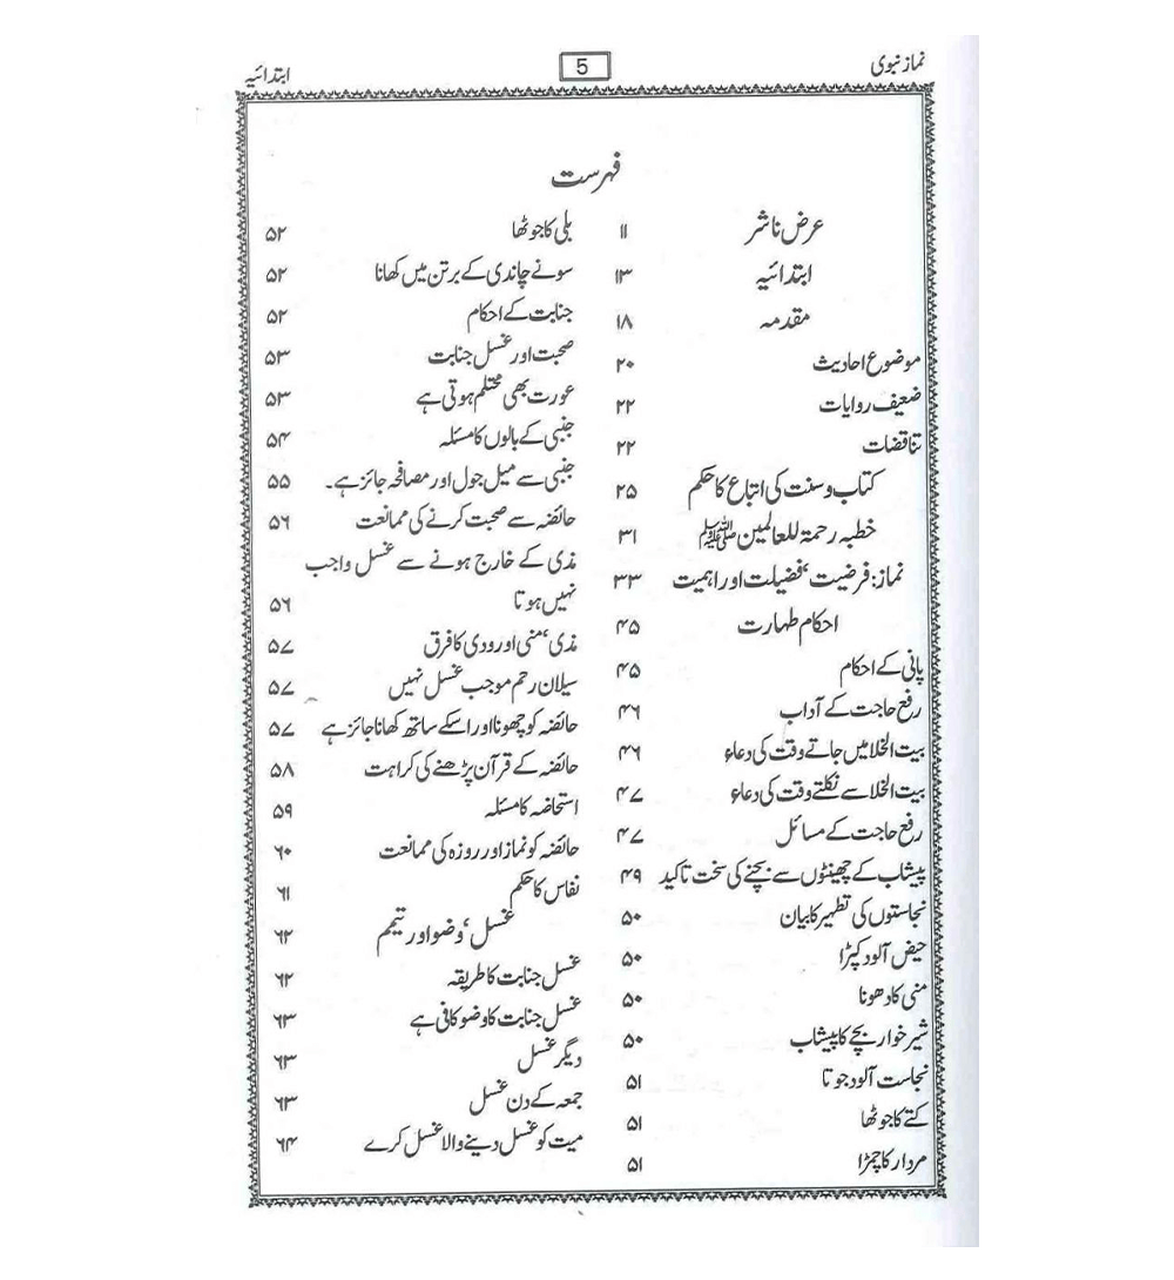 نماز نبوی
5
ابتدائیہ
فہرست
عرض ناشر ۱۱
ابتدائیہ ۱۳
مقدمہ ۱۸
موضوع احادیث ۲۰
ضعیف روایات ۲۲
تناقضات ۲۲
کتاب و سنت کی اتباع کا حکم ۲۵
خطبہ رحمۃ للعالمین ﷺ ۳۱
نماز: فرضیت ‘ فضیلت اور اہمیت ۳۳
احکام طہارت ۴۵
پانی کے احکام ۴۵
رفع حاجت کے آداب ۴۶
بیت الخلا میں جاتے وقت کی دعاء ۴۶
بیت الخلا سے نکلتے وقت کی دعاء ۴۷
رفع حاجت کے مسائل ۴۷
پیشاب کے چھینٹوں سے بچنے کی سخت تاکید ۴۹
نجاستوں کی تطہیر کا بیان ۵۰
حیض آلود کپڑا ۵۰
منی کا دھونا ۵۰
شیر خوار بچے کا پیشاب ۵۰
نجاست آلود جوتا ۵۱
کتے کا جوٹھا ۵۱
مردار کا چمڑا ۵۱
بلی کا جوٹھا ۵۲
سونے چاندی کے برتن میں کھانا ۵۲
جنابت کے احکام ۵۲
صحبت اور غسل جنابت ۵۳
عورت بھی محتلم ہوتی ہے ۵۳
جنبی کے بالوں کا مسئلہ ۵۴
جنبی سے میل جول اور مصافحہ جائز ہے۔ ۵۵
حائضہ سے صحبت کرنے کی ممانعت ۵۶
مذی کے خارج ہونے سے غسل واجب
نہیں ہوتا ۵۶
مذی ‘ منی اور ودی کا فرق ۵۷
سیلان رحم موجب غسل نہیں ۵۷
حائضہ کو چھونا اور اسکے ساتھ کھانا جائز ہے ۵۷
حائضہ کے قرآن پڑھنے کی کراہت ۵۸
استحاضہ کا مسئلہ ۵۹
حائضہ کو نماز اور روزہ کی ممانعت ۶۰
نفاس کا حکم ۶۱
غسل ‘ وضو اور تیمم ۶۲
غسل جنابت کا طریقہ ۶۲
غسل جنابت کا وضو کافی ہے ۶۳
دیگر غسل ۶۳
جمعہ کے دن غسل ۶۳
میت کو غسل دینے والا غسل کرے ۶۴